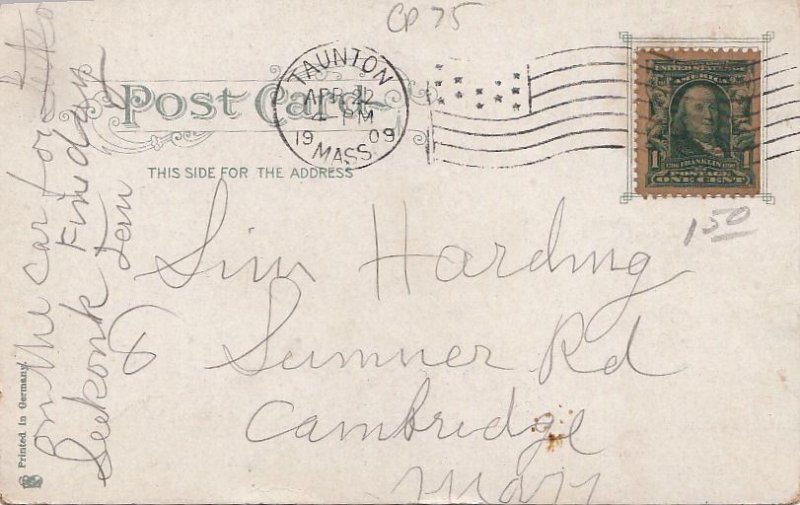 CP 75
Post Card
TAUNTON
APR 12
PM
19 09
MASS.
THIS SIDE FOR THE ADDRESS
UNITED STATES OF
AMERICA
1 FRANKLIN 1
POSTAGE
ONE CENT
1 50
Sim Harding
8 Sumner Rd
Cambridge
Mass
on the car for
Seekonk
Fine day
Printed in Germany.